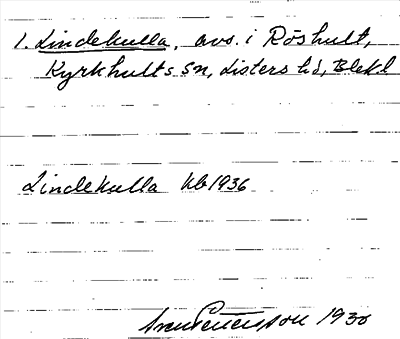 1. Lindekulla, avs. i Röshult,
Kyrkhults sn, Listers hd, Blekl
Lindekulla kb 1936
Sven Pettersson 1936